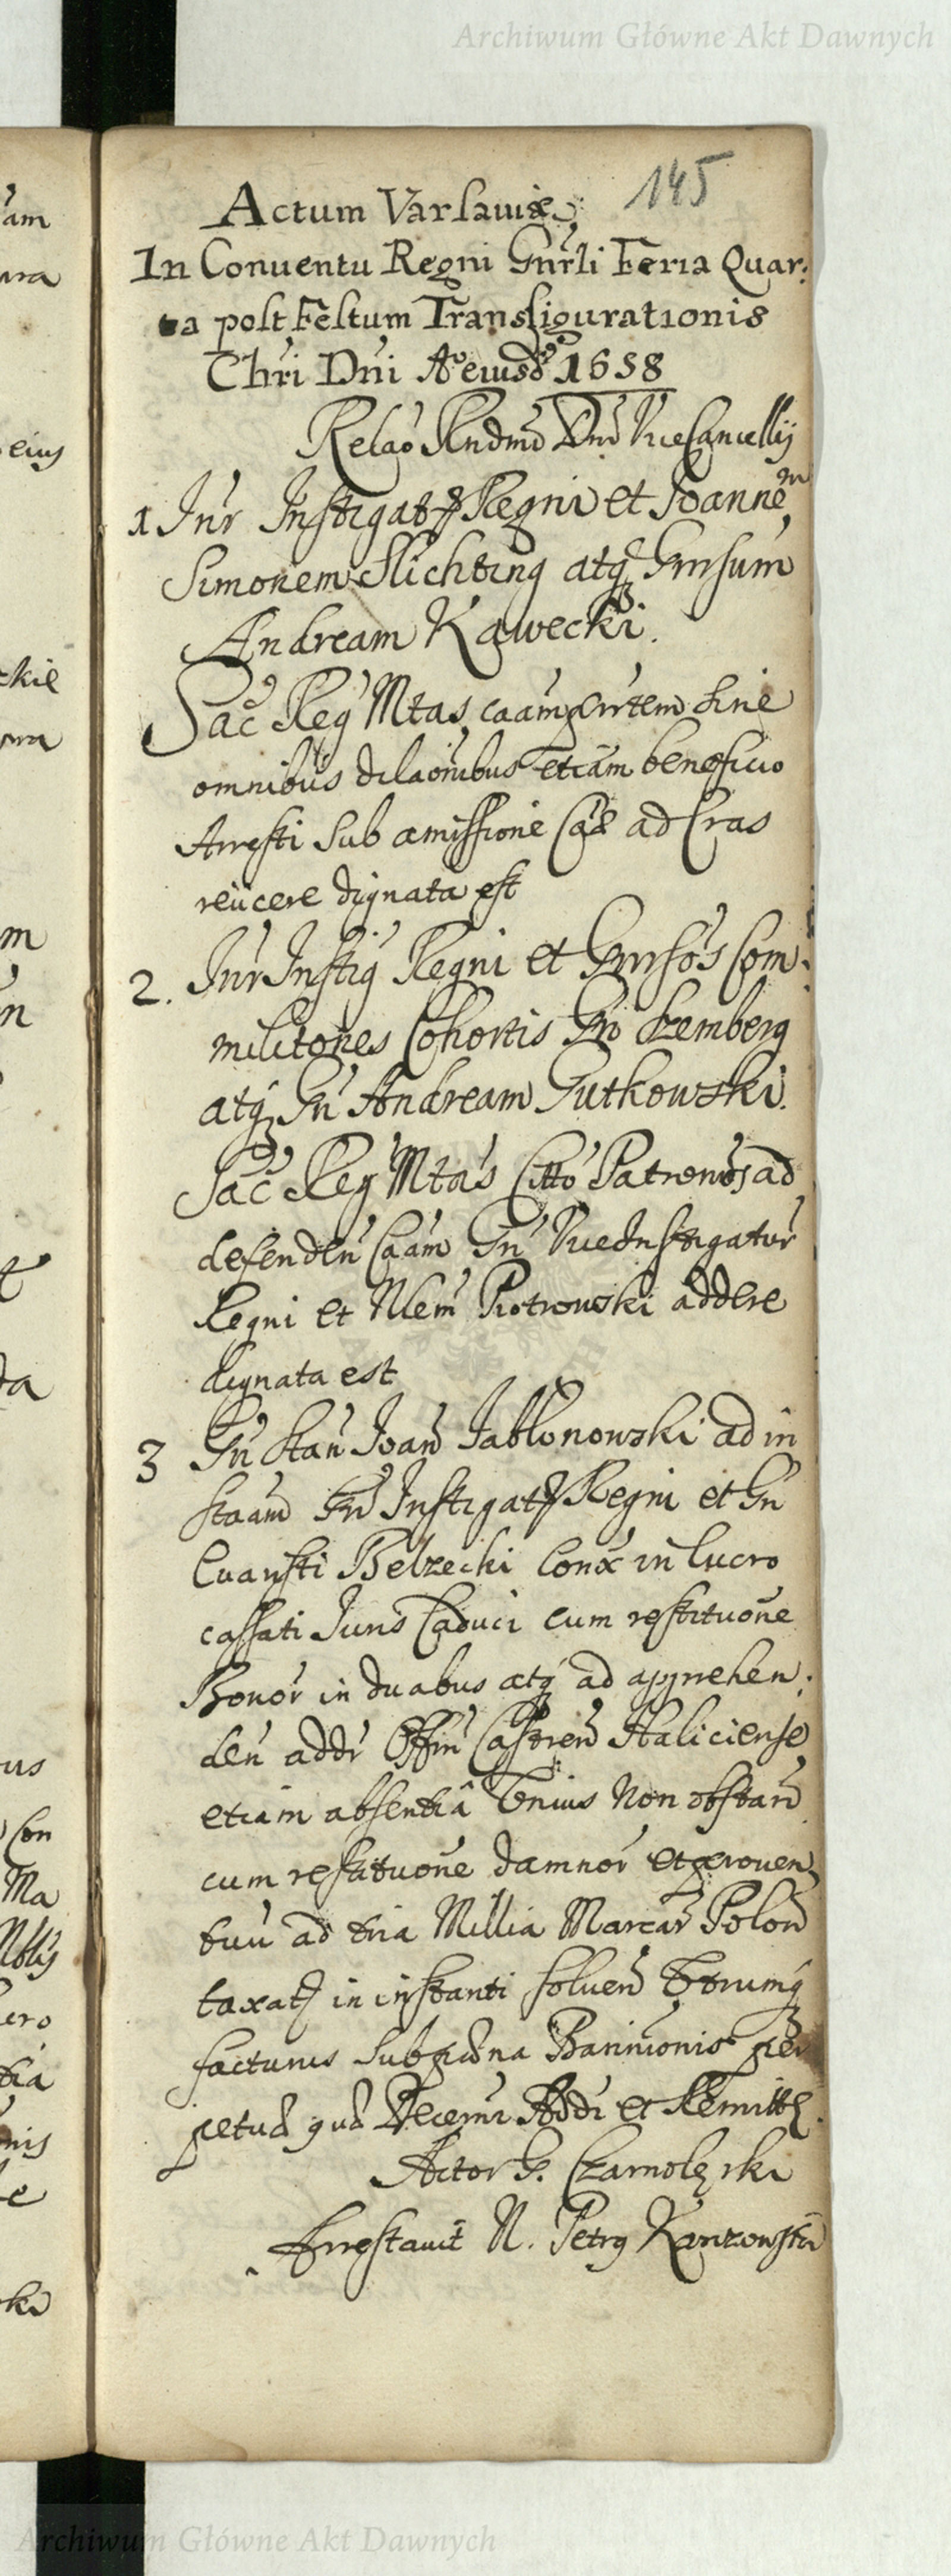 Archiwum Główne Akt Dawnych
145
Actum Varsauiæ
In Conuentu Regni Gnrli Feria Quar:
ta post Festum Transfigurationis
Chri Dni Ao eiusd 1658
Relao Rndmi Dni ViceCancellij
1 Inr Instigat Regni et Joannem
Simonem Slichting atq Gnrsum
Andream Kawecki.
Sac Reg Mtas caam pntem sine
omnibus dilaonibus etiam beneficio
Arresti sub amissione Cae ad Cras
reiicere dignata est
2. Inr Instig Regni et Gnrsos Com:
militones Cohortis Gn Szemberg
atq Gn Andream Gutkowski.
Sac Reg Mtas Citto Patronos ad
defenden Caam Gn ViceInstigator
Regni et Nlem Piotrowski addere
dignata est
3 Gn Stan Joan Jablonowski ad in
staam Gn Instigat Regni et Gn
Euaristi Belzecki Conx in lucro
cassati Juris Caduci cum restituone
Bonor in duabus atq ad apprehen:
den addr Offm Castren Haliciense
etiam absentia Vnius Non obstan
cum restituone damnor et prouen
tuu ad tria Millia Marcar Polon
taxat in instanti soluen Vtrumq
facturus sub pna Bannionis per
petua qua Decerni Addi et Remitti.
Actor G. Czarnolęski
Arrestauit N. Petrg
Archiwum Główne Akt Dawnych